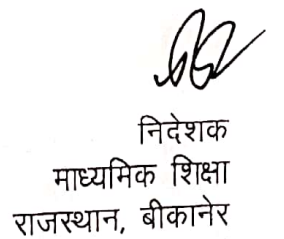 निदेशक
माध्यमिक शिक्षा
राजस्थान, बीकानेर